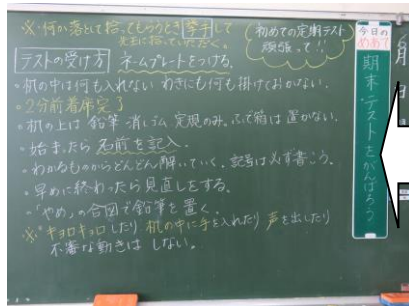 ※何か落として拾ってもらうとき挙手して
先生に拾っていただく。
初めての定期テスト
頑張って!!
今日の
めあて
期末テストをがんばろう
月
日
テストの受け方 ネームプレートをつける。
・机の中は何も入れない わきにも何も掛けておかない。
・2分前着席完了
・机の上は 鉛筆・消しゴム 定規のみ。ふで箱は置かない。
・始まったら 名前を記入。
・わかるものからどんどん解いていく。記号は必ず書こう。
・早めに終わったら見直しをする。
・「やめ」の合図で鉛筆を置く。
※キョロキョロしたり 机の中に手を入れたり 声を出したり
不審な動きは しない。